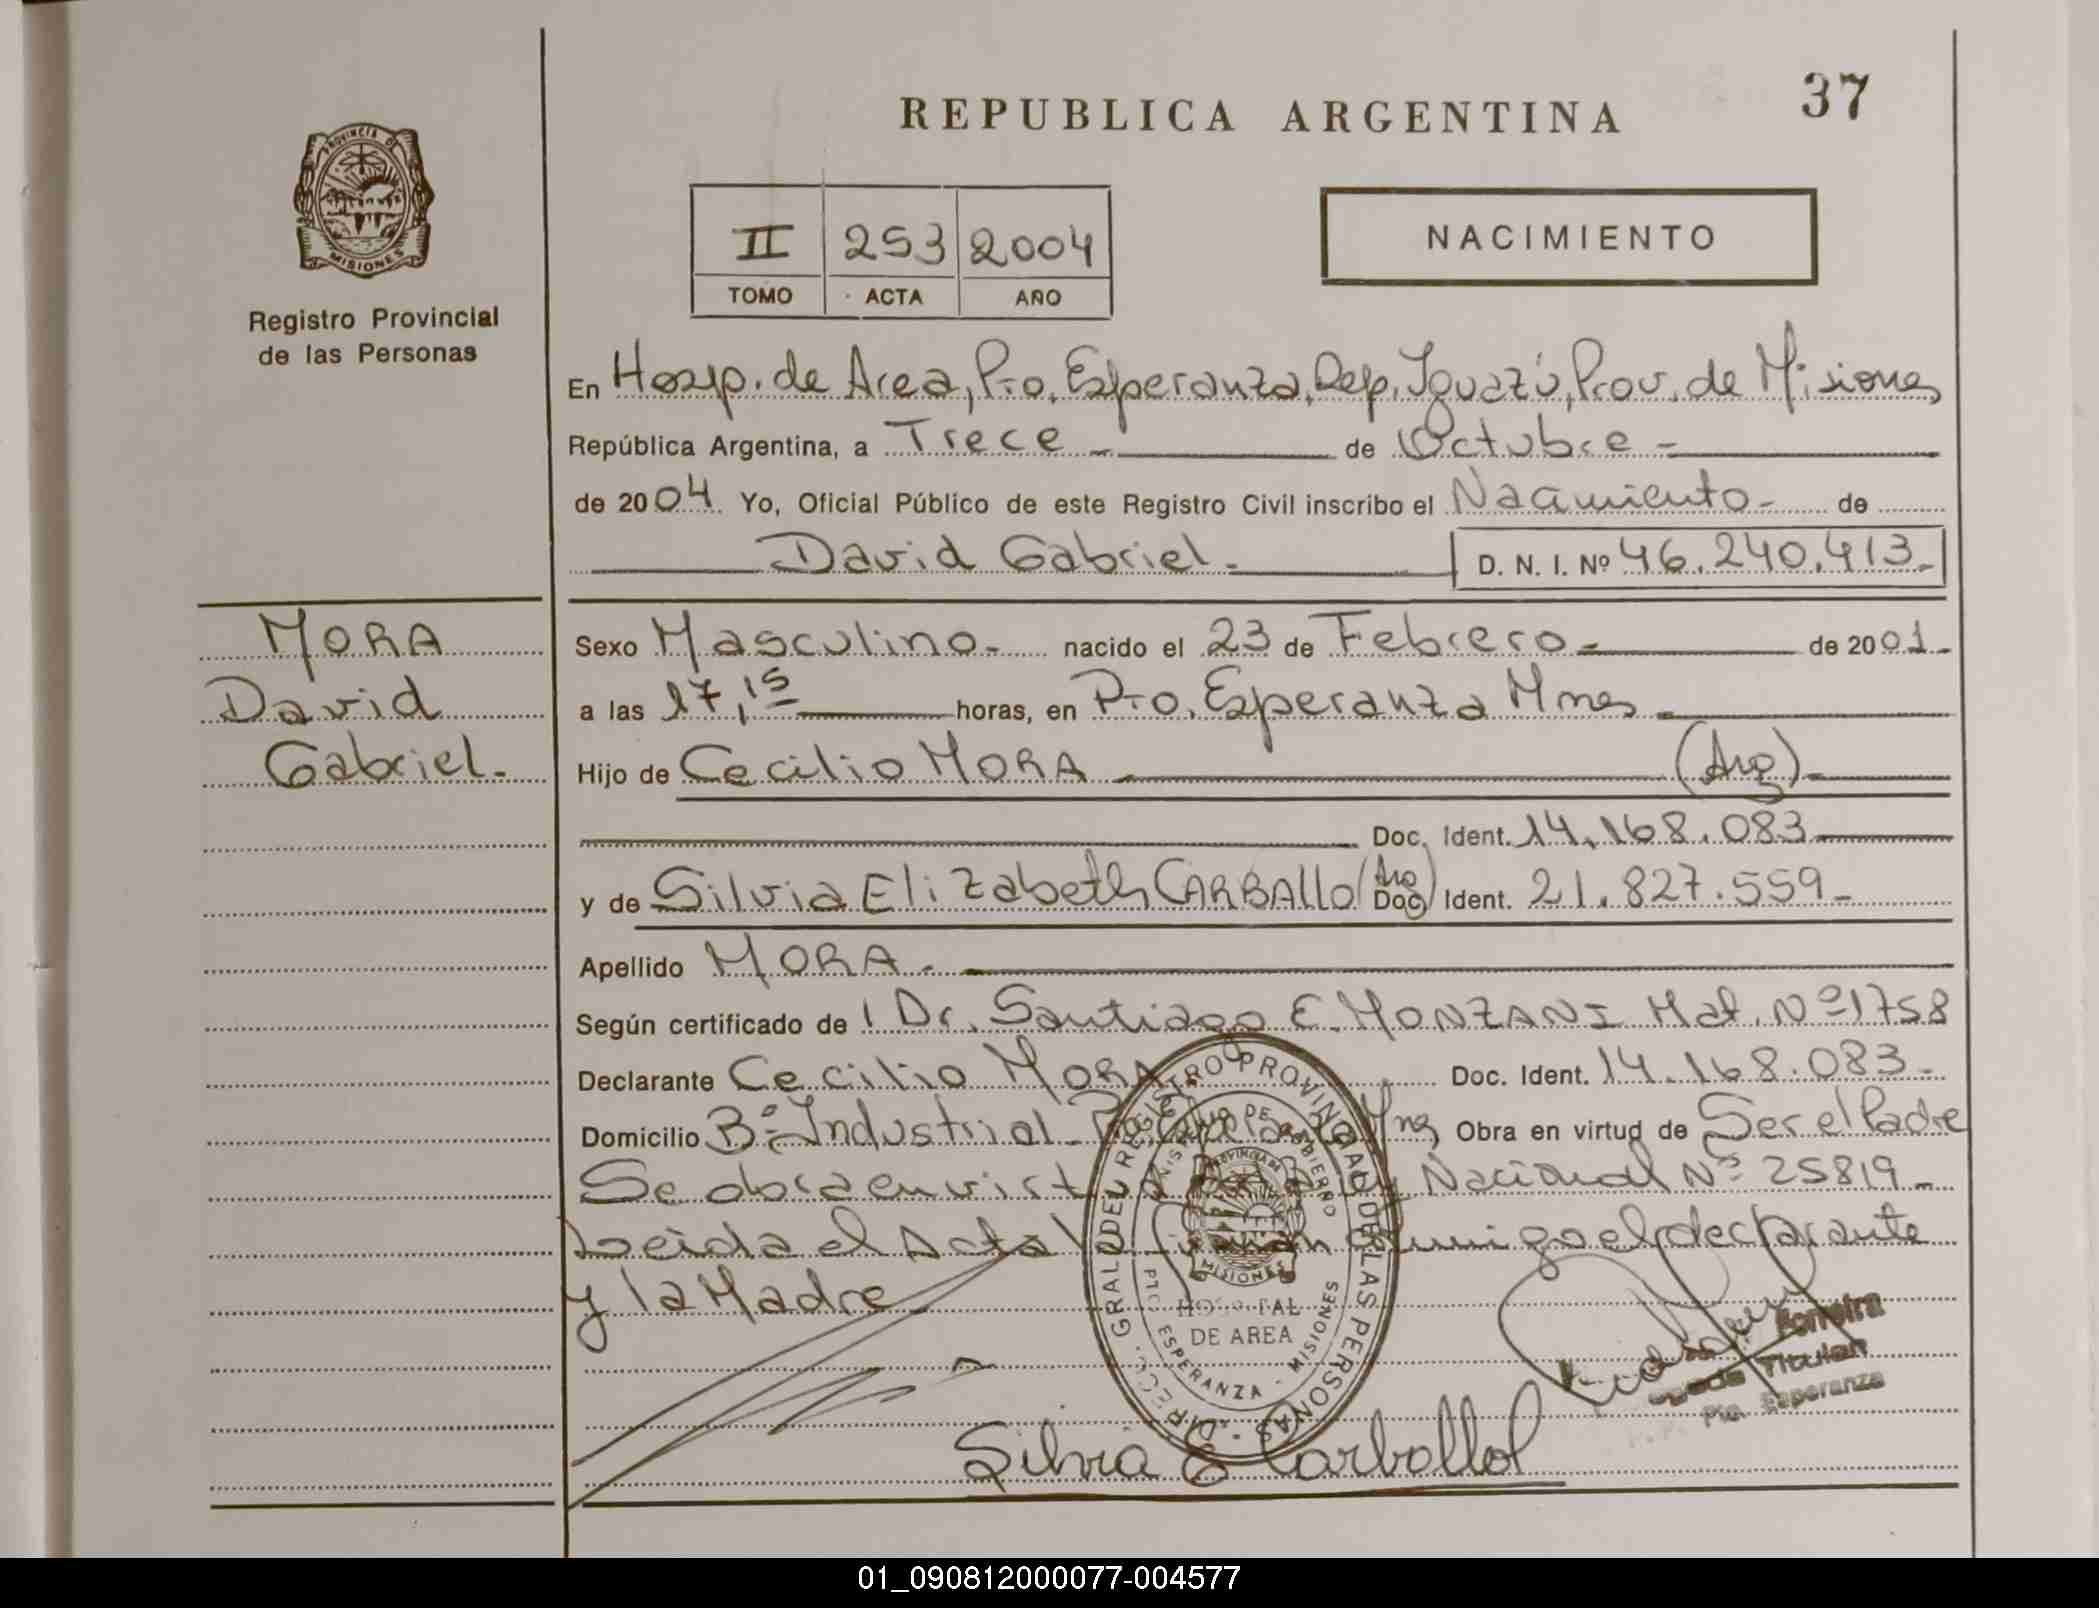 REPUBLICA ARGENTINA
37
PROVINCIA DE
MISIONES
Registro Provincial
de las Personas
II 253 2004
TOMO ACTA AÑO
NACIMIENTO
En Hosp. de Area, Pto. Esperanza, Dep. Iguazú, Prov. de Misiones
República Argentina, a Trece de Octubre
de 2004 Yo, Oficial Público de este Registro Civil inscribo el Nacimiento de
David Gabriel. D. N. I. Nº 46.240.413
MORA
David
Gabriel.
Sexo Masculino nacido el 23 de Febrero de 2001
a las 17,15 horas, en Pto. Esperanza Mnes
Hijo de Cecilio MORA (Arg)
Doc. Ident. 14.168.083
y de Silvia Elizabeth CARBAllO (Arg) Doc. Ident. 21.827.559
Apellido MORA.
Según certificado de Dr. Santiago E. MONZANI Mat. Nº 1758
Declarante Cecilio MORA Doc. Ident. 14.168.083
Domicilio Bº Industrial Mnes Obra en virtud de Ser el Padre
Se obra en Nacional Nº 25819
Leida el Acta el declarante
y la Madre
DIRECC. GRAL. DEL REGISTRO PROVINCIAL DE LAS PERSONAS
PROVINCIA DE
MISIONES
HOSPITAL
DE AREA
PTO. ESPERANZA - MISIONES
Ferreira
Titular
Pto. Esperanza
Silvia E Carballo
01_090812000077-004577